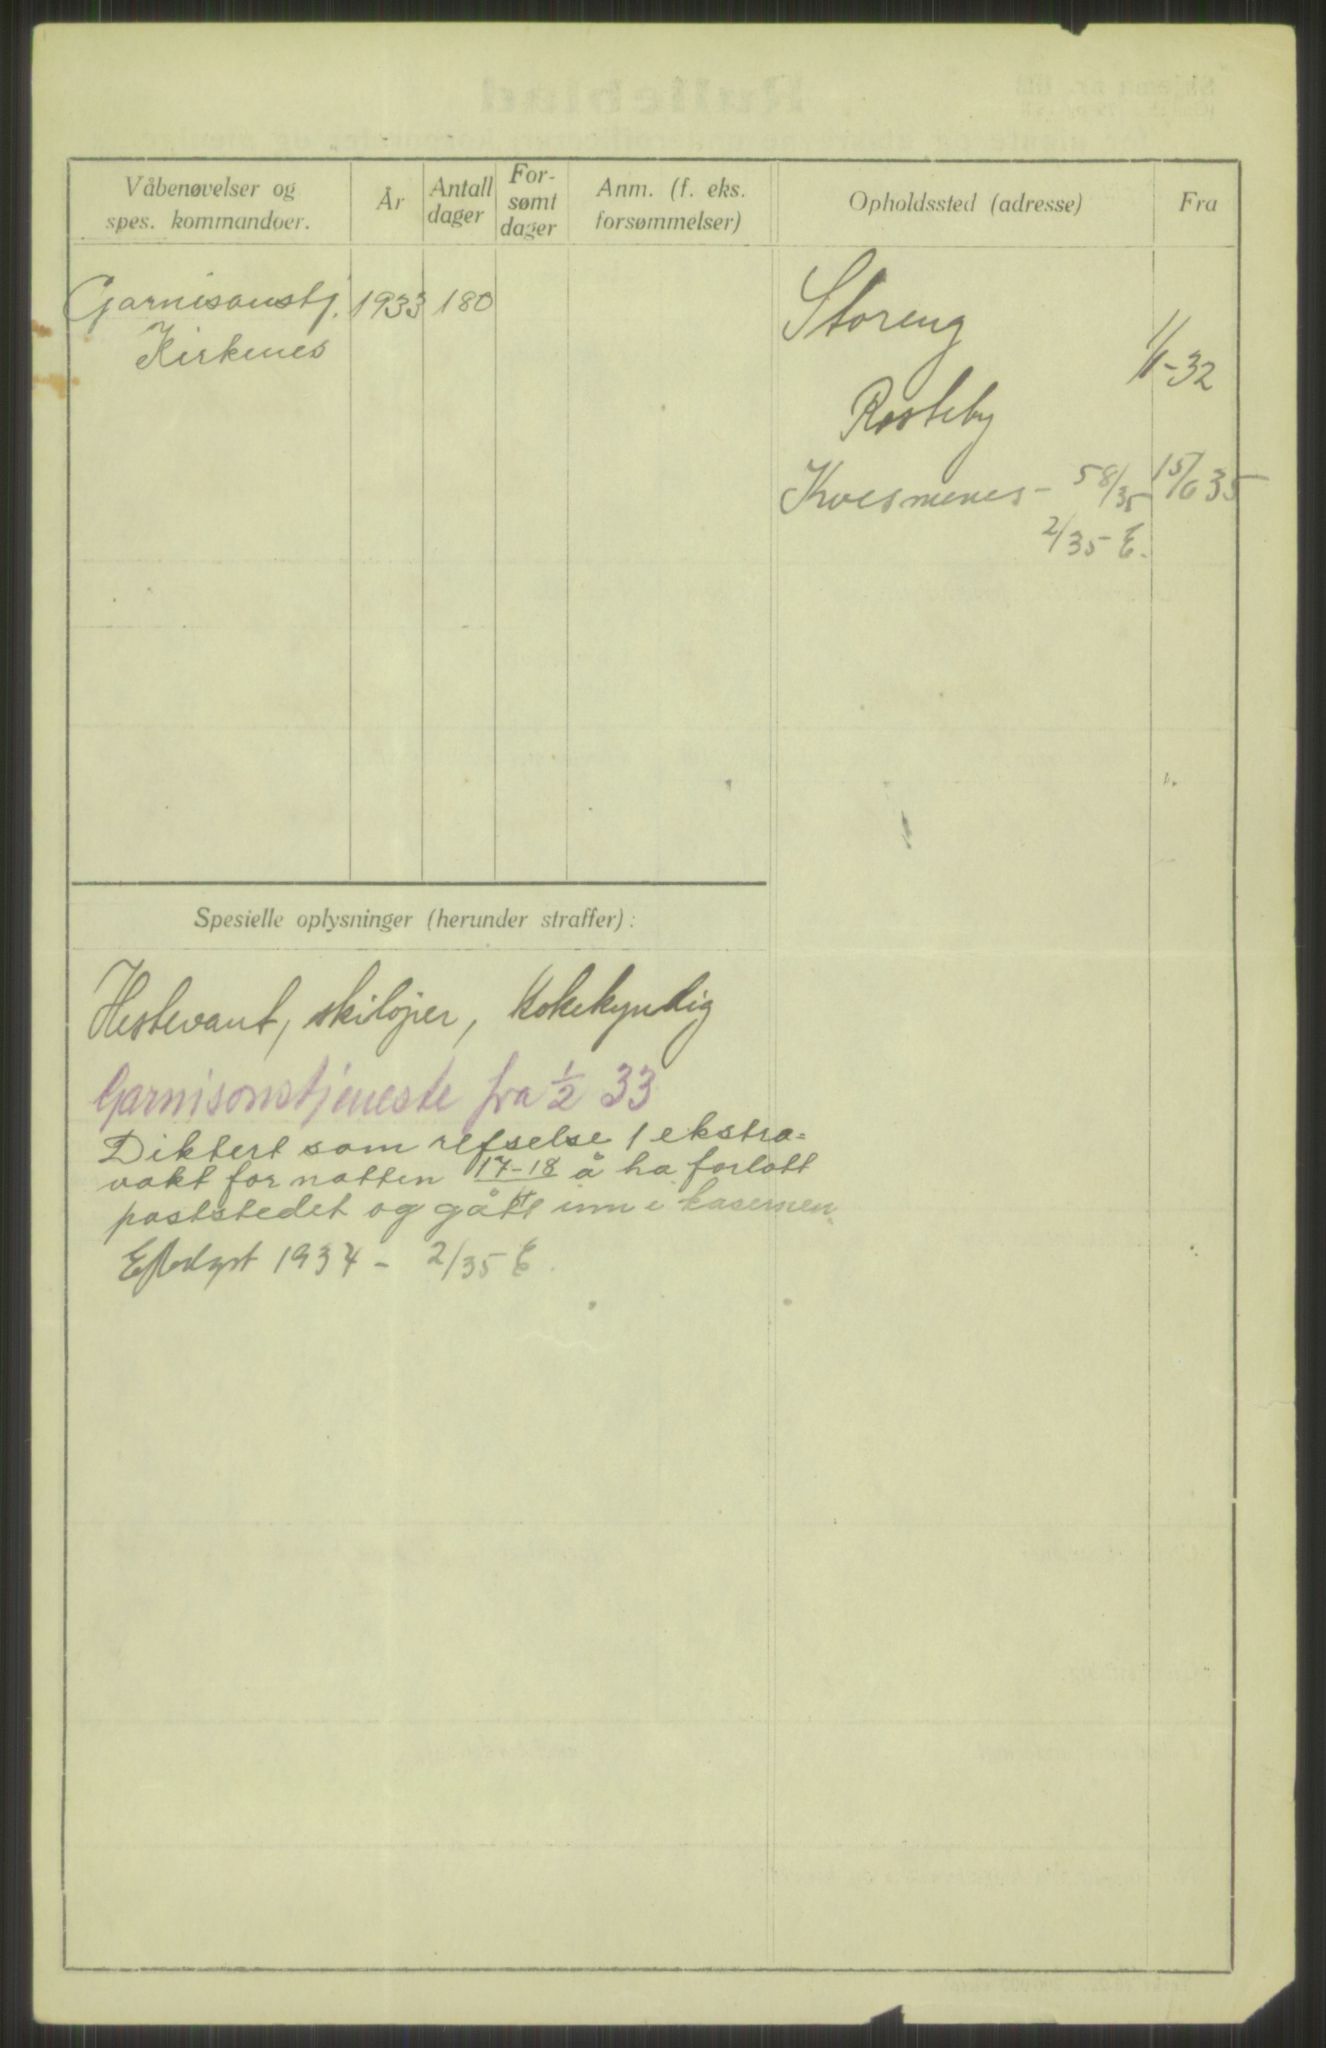 Våbenøvelser og
spes. kommandoer.
År
Antall
dager
For-
sømt
dager
Anm. (f. eks.
forsømmelser)
Opholdssted (adresse)
Fra
Garnisonstj. 1933 180
Kirkenes
Storeng
1/1-32
Rasteby
Kvesmenes - 58/35 15/6 35
2/35 E.
Spesielle oplysninger (herunder straffer):
Hestevant, skiløper, kokekyndig
Garnisonstjeneste fra 1/2 33
Diktert som refselse 1 ekstra-
vakt for natten 17-18 å ha forlatt
poststedet og gått inn i kasernen
1934 - 2/35 E.